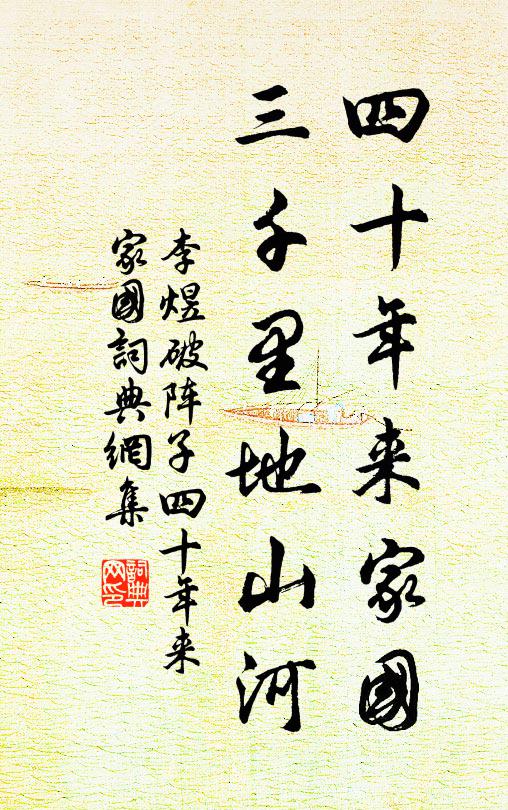 四十年来家國
三千里地山河
李煜破阵子四十年来
家國詞典網集
詞典
网印